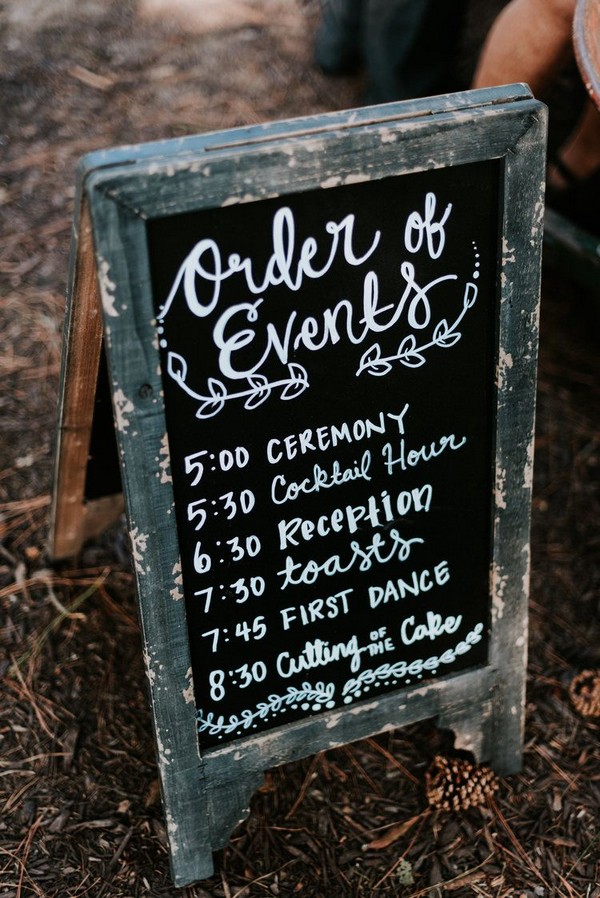 Order of
Events
5:00 CEREMONY
5:30 Cocktail Hour
6:30 Reception
7:30 toasts
7:45 FIRST DANCE
8:30 Cutting OF THE Cake